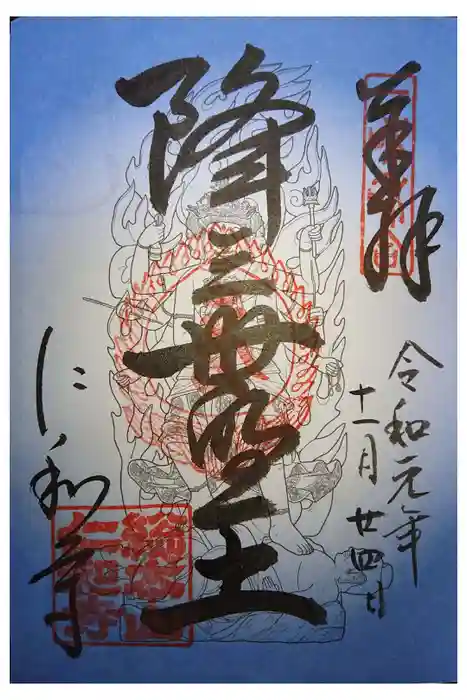 奉拝
令和元年
十一月廿四日
降三世明王
仁和寺